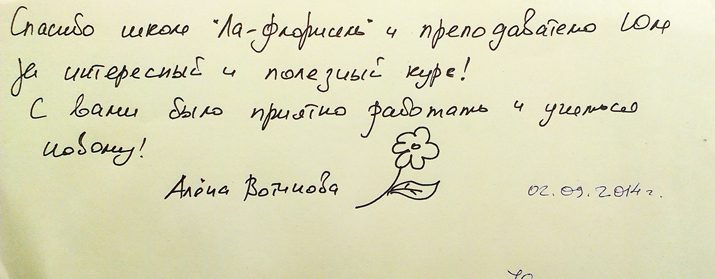 Спасибо школе "Ла-флориель" и преподавателю Юле
за интересный и полезный курс!
С вами было приятно работать и учиться
новому!
Алёна Вотинова 02.09.2014г.